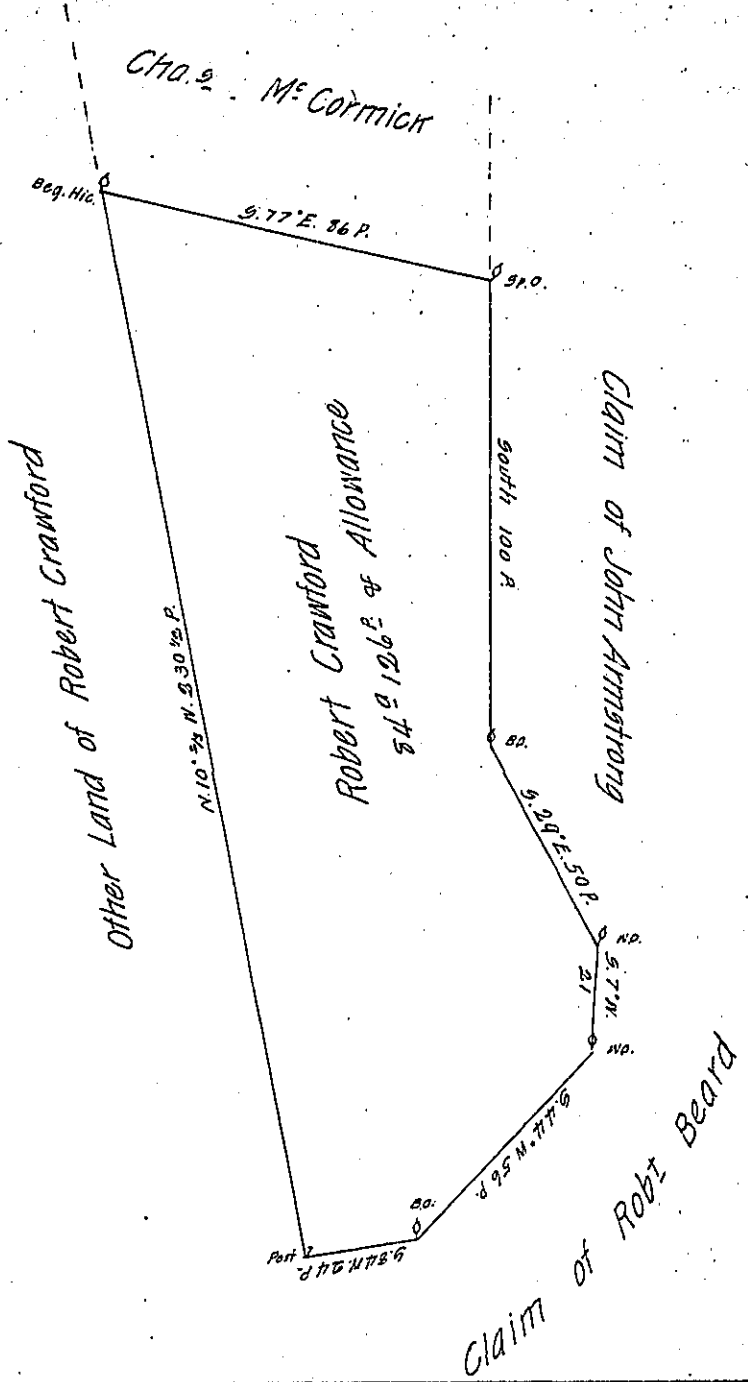 Cha.s. McCormick
Beg. Hic.
S. 77° E. 86 P.
Sp.O.
Other Land of Robert Crawford
N. 10° 2/3 W. 230 1/2 P.
Robert Crawford
84a 126p & Allowance
South 100 P.
Claim of John Armstrong
B.O.
S. 29° E. 50 P.
W.O.
S. 7° W.
21
W.O.
S. 44° W. 56 P.
B.O.
Post
S. 84 W. 24 P.
Claim of Robt Beard